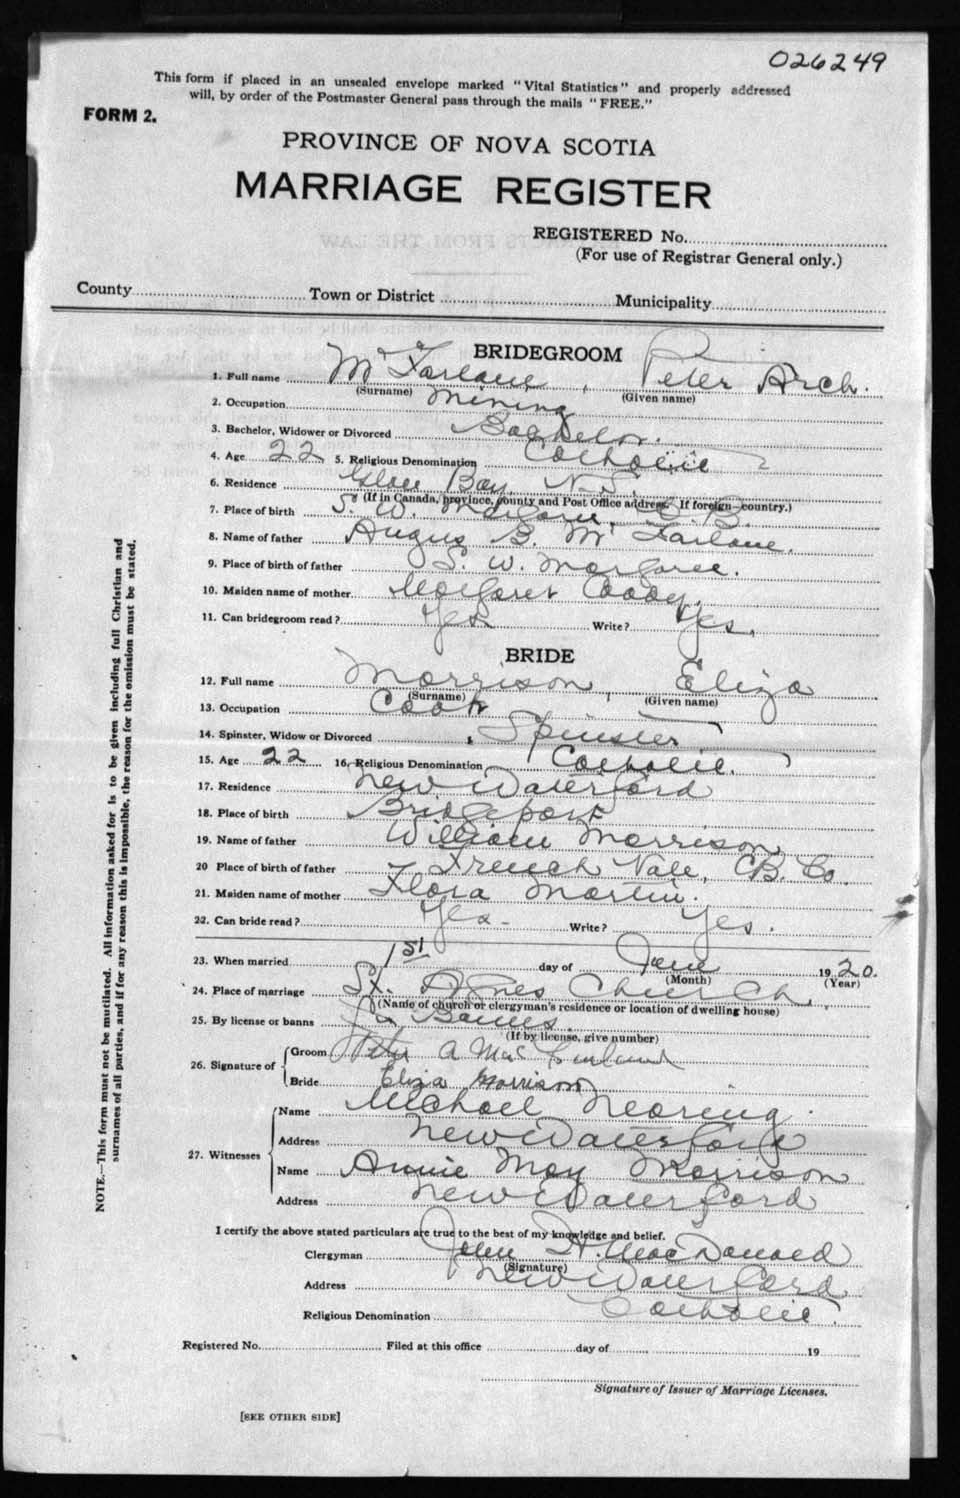 026249
This form if placed in an unsealed envelope marked "Vital Statistics" and properly addressed
will, by order of the Postmaster General pass through the mails "FREE."
FORM 2.
PROVINCE OF NOVA SCOTIA
MARRIAGE REGISTER
REGISTERED No.
(For use of Registrar General only.)
County Town or District Municipality
BRIDEGROOM
1. Full name McFarlane, Peter Arch.
(Surname) (Given name)
2. Occupation Mining
3. Bachelor, Widower or Divorced Bachelor.
4. Age 22 5. Religious Denomination Catholic
6. Residence Glace Bay, N.S.
(If in Canada, province, county and Post Office address. If foreign—country.)
7. Place of birth S. W. Margaree, C. B.
8. Name of father Angus B. McFarlane.
9. Place of birth of father S. W. Margaree.
10. Maiden name of mother Margaret Coady.
11. Can bridegroom read? Yes Write? Yes.
BRIDE
12. Full name Morrison, Eliza
(Surname) (Given name)
13. Occupation Cook
14. Spinster, Widow or Divorced Spinster
15. Age 22 16. Religious Denomination Catholic.
17. Residence New Waterford
18. Place of birth Bridgeport
19. Name of father William Morrison
20 Place of birth of father French Vale, C.B. Co.
21. Maiden name of mother Flora Martin.
22. Can bride read? Yes- Write? Yes.
23. When married 1st day of June 1920.
(Month) (Year)
24. Place of marriage St. Agnes Church,
(Name of church or clergyman's residence or location of dwelling house)
25. By license or banns Banns.
(If by license, give number)
26. Signature of Groom Peter A Mac Farland
Bride Eliza Morrison
27. Witnesses Name Michael Nearing
Address New Waterford
Name Annie May Morrison
Address New Waterford
I certify the above stated particulars are true to the best of my knowledge and belief.
Clergyman John H. MacDonald
(Signature)
Address New Waterford
Religious Denomination Catholic.
Registered No. Filed at this office day of 19
Signature of Issuer of Marriage Licenses.
[SEE OTHER SIDE]
NOTE.—This form must not be mutilated. All information asked for is to be given including full Christian and
surnames of all parties, and if for any reason this is impossible, the reason for the omission must be stated.